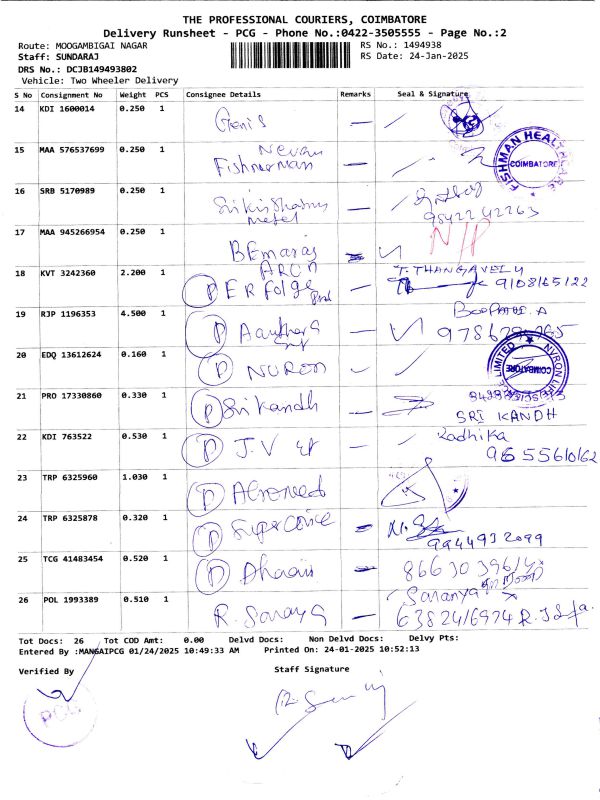 THE PROFESSIONAL COURIERS, COIMBATORE
Delivery Runsheet - PCG - Phone No.:0422-3505555 - Page No.:2
Route: MOOGAMBIGAI NAGAR RS No.: 1494938
Staff: SUNDARAJ RS Date: 24-Jan-2025
DRS No.: DCJB149493802
Vehicle: Two Wheeler Delivery
S No Consignment No Weight PCS Consignee Details Remarks Seal & Signature
14 KDI 1600014 0.250 1
15 MAA 576537699 0.250 1
Fishnerman
FISHMAN HEALTHCARE COIMBATORE
16 SRB 5170989 0.250 1
9842242263
17 MAA 945266954 0.250 1 N/P
BEmaraj
18 KVT 3242360 2.200 1 ARCN T. THANGAVELU
P ER Folge 9108165122
19 RJP 1196353 4.500 1
P
20 EDQ 13612624 0.160 1
P NURON
NVRON LIFE LIMITED COIMBATORE
21 PRO 17330860 0.330 1
P Srikandh SRI KANDH
22 KDI 763522 0.530 1 Radhika
P J.V 9655610162
23 TRP 6325960 1.030 1
P
24 TRP 6325878 0.320 1
P 9944932099
25 TCG 41483454 0.520 1
P
26 POL 1993389 0.510 1 Saranya
R. Saraya 6382416974
Tot Docs: 26 Tot COD Amt: 0.00 Delvd Docs: Non Delvd Docs: Delvy Pts:
Entered By :MANGAIPCG 01/24/2025 10:49:33 AM Printed On: 24-01-2025 10:52:13
Verified By Staff Signature
PCG